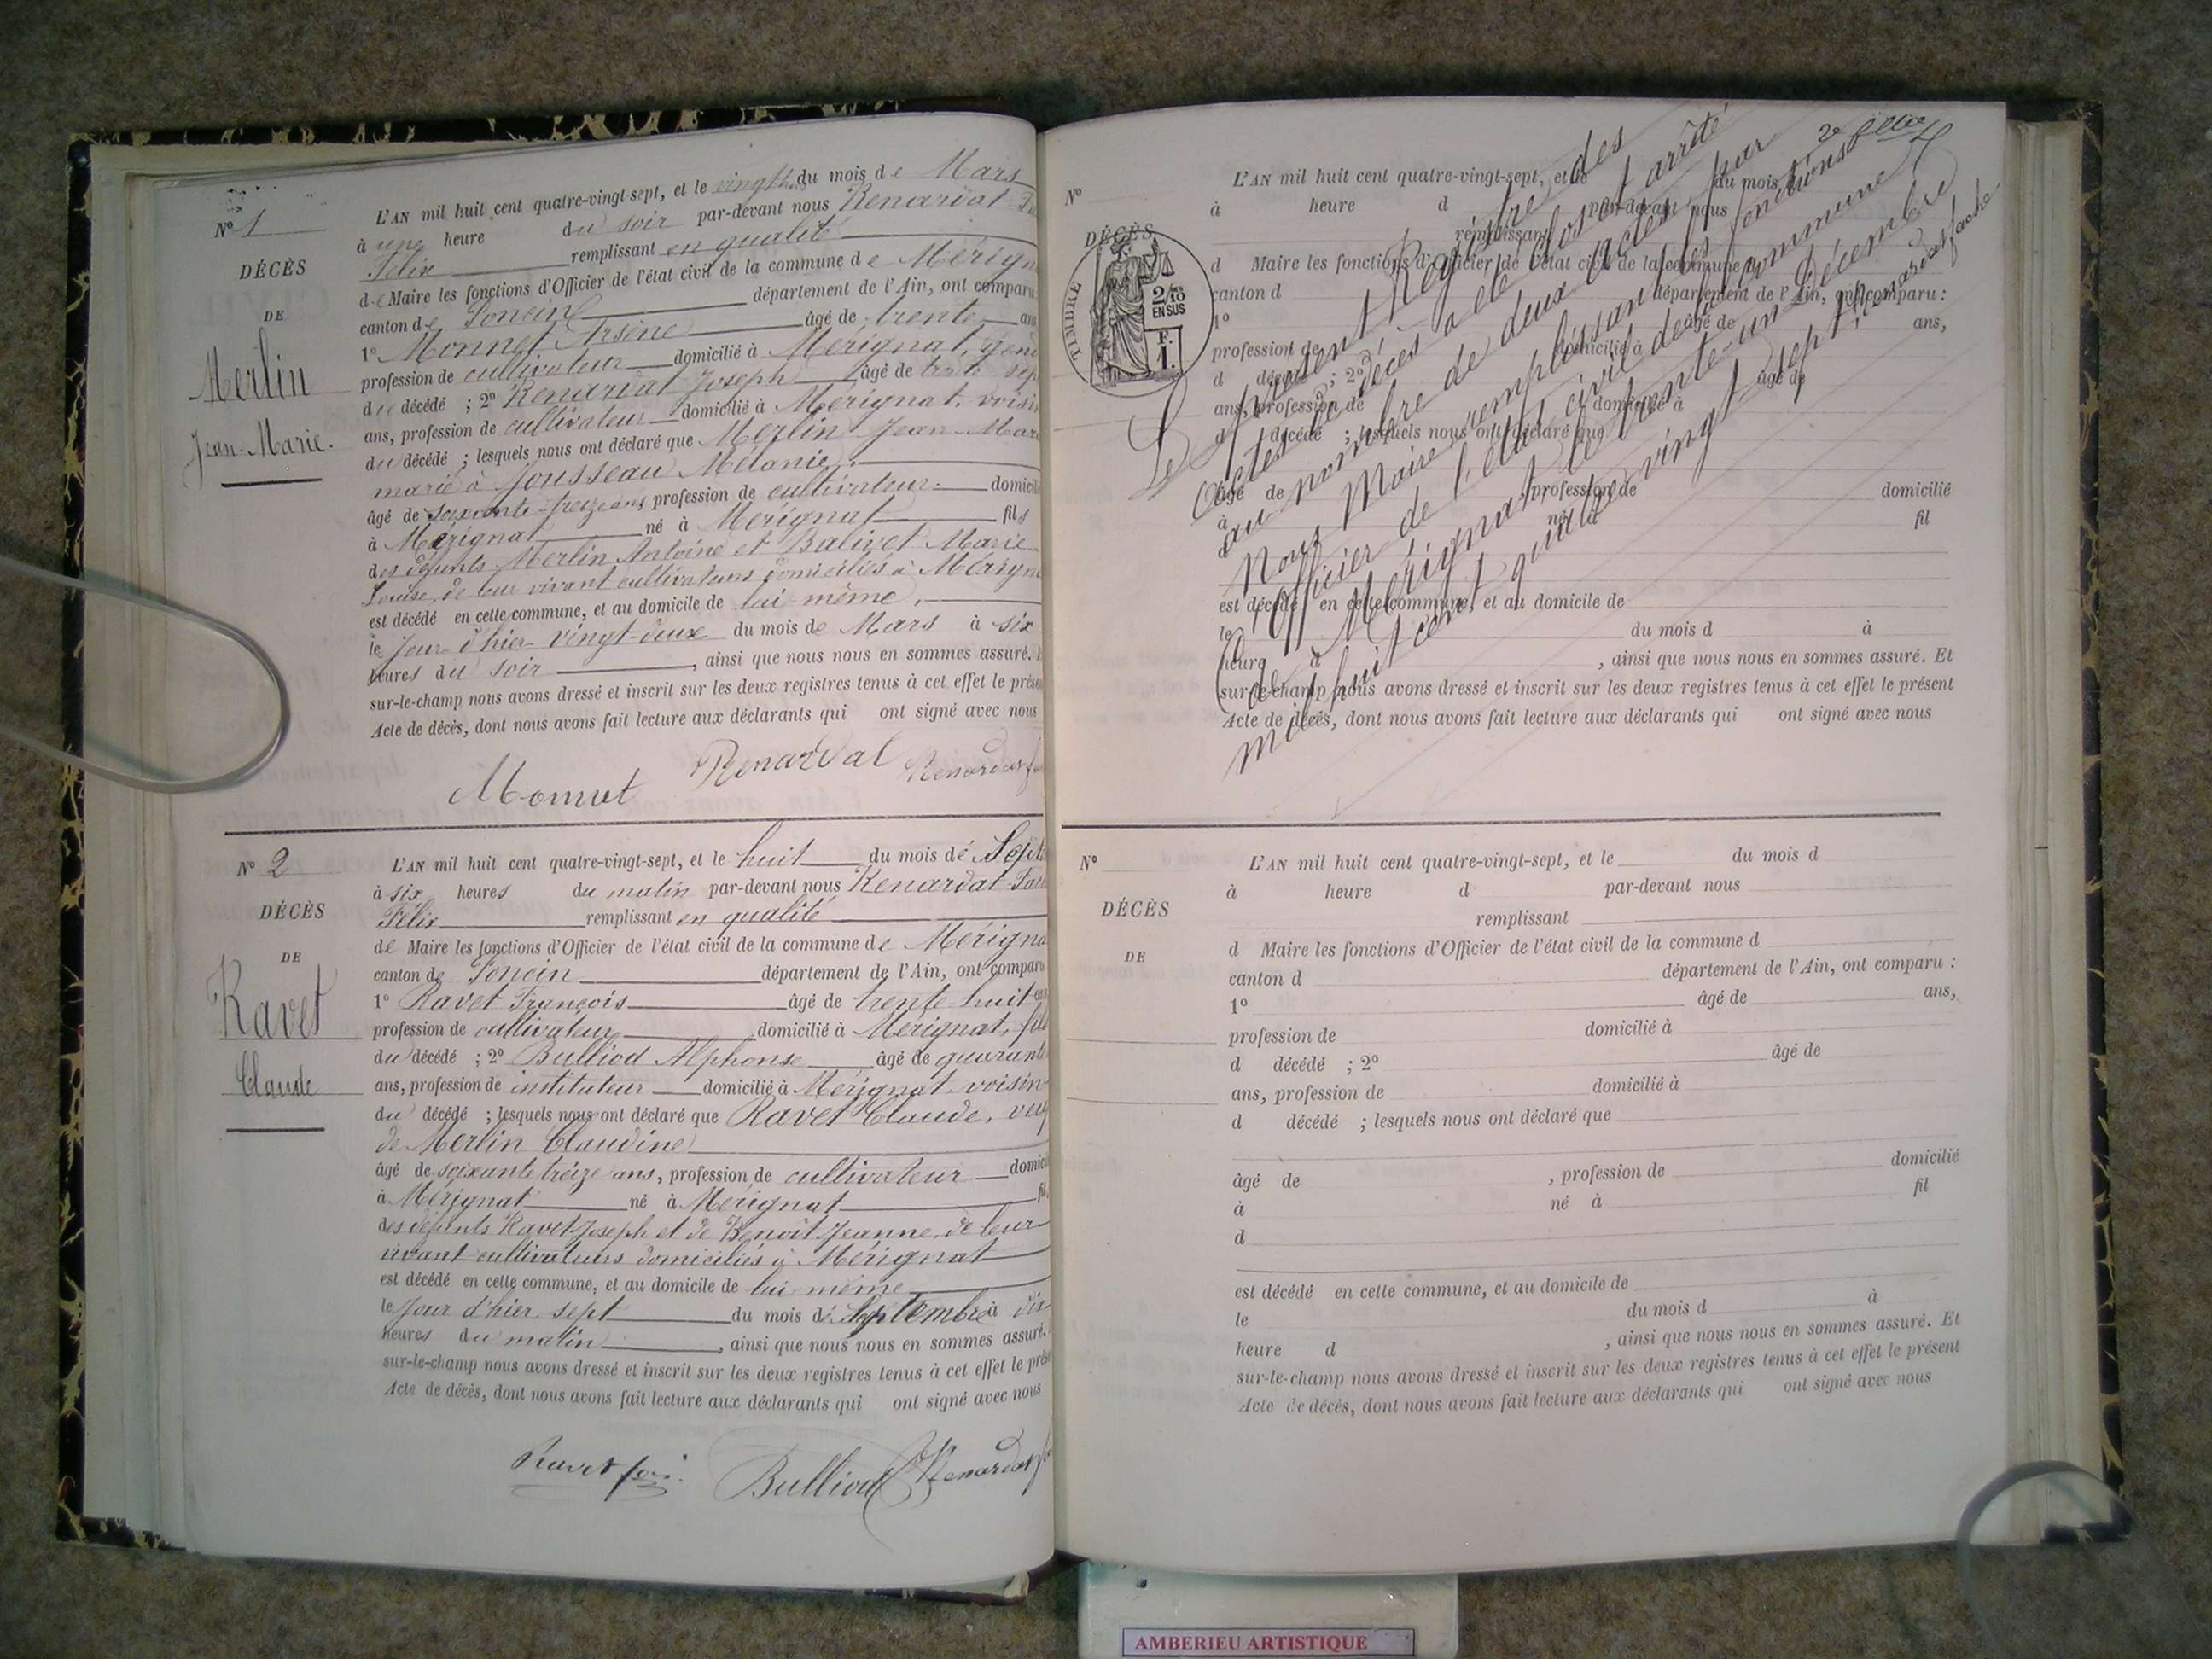 N° 1
DÉCÈS
DE
Merlin
Jean-Marie.
L'AN mil huit cent quatre-vingt-sept, et le du mois de Mars
à une heure du soir par-devant nous Renardat
Félix remplissant en qualité
de Maire les fonctions d'Officier de l'état civil de la commune de Mérign
canton de Poncin département de l'Ain, ont comparu
1° Monnet Arsène âgé de trente ans
profession de cultivateur domicilié à Mérignat, gend
du décédé ; 2° Renardat Joseph âgé de trente sept
ans, profession de cultivateur domicilié à Mérignat, voisin
du décédé ; lesquels nous ont déclaré que Merlin Jean-Mar
marié à Jousseau Mélanie,
âgé de soixante-treize ans, profession de cultivateur domicil
à Mérignat né à Mérignat fils
des défunts Merlin Antoine et Balivet Marie
Louise, de leur vivant cultivateurs domiciliés à Mérign
est décédé en cette commune, et au domicile de lui-même,
le jour d'hier vingt-deux du mois de Mars à six
heures du soir , ainsi que nous nous en sommes assuré.
sur-le-champ nous avons dressé et inscrit sur les deux registres tenus à cet effet le prése
Acte de décès, dont nous avons fait lecture aux déclarants qui ont signé avec nous
Monnet Renardat Renardat
N° 2
DÉCÈS
DE
Ravet
Claude
L'AN mil huit cent quatre-vingt-sept, et le huit du mois de Septe
à six heures du matin par-devant nous Renardat
Félix remplissant en qualité
de Maire les fonctions d'Officier de l'état civil de la commune de Mérigna
canton de Poncin département de l'Ain, ont comparu
1° Ravet François âgé de trente-huit ans
profession de cultivateur domicilié à Mérignat, fils
du décédé ; 2° Bulliod Alphonse âgé de quarant
ans, profession de instituteur domicilié à Mérignat voisin
du décédé ; lesquels nous ont déclaré que Ravet Claude, veuf
de Merlin Claudine
âgé de soixante treize ans, profession de cultivateur domici
à Mérignat né à Mérignat fil
des défunts Ravet Joseph et de Benoit Jeanne, de leur
vivant cultivateurs domiciliés à Mérignat
est décédé en cette commune, et au domicile de lui même
le jour d'hier sept du mois de Septembre à dix
heures du matin , ainsi que nous nous en sommes assuré.
sur-le-champ nous avons dressé et inscrit sur les deux registres tenus à cet effet le prése
Acte de décès, dont nous avons fait lecture aux déclarants qui ont signé avec nous
Ravet Bulliod Renardat
N°
DÉCÈS
TIMBRE
2/10
EN SUS
F.
1.
L'AN mil huit cent quatre-vingt-sept, et le du mois
à heure d par-devant nous
remplissant
d Maire les fonctions d'Officier de l'état civil de la commune
canton d département de l'Ain, ont comparu :
1° âgé de ans,
profession de domicilié à
d décédé ; 2° âgé de
ans, profession de domicilié à
d décédé ; lesquels nous ont déclaré que
âgé de , profession de domicilié
à né à fil
d
est décédé en cette commune, et au domicile de
le du mois d à
heure d , ainsi que nous nous en sommes assuré. Et
sur-le-champ nous avons dressé et inscrit sur les deux registres tenus à cet effet le présent
Acte de décès, dont nous avons fait lecture aux déclarants qui ont signé avec nous
Le présent Registre des
actes de décès a été clos et arrêté
au nombre de deux actes par
Nous Maire remplissant les fonctions
d'officier de l'état civil de la commune
de Mérignat le trente-un Décembre
mil huit cent quatre vingt sept
N°
DÉCÈS
DE
L'AN mil huit cent quatre-vingt-sept, et le du mois d
à heure d par-devant nous
remplissant
d Maire les fonctions d'Officier de l'état civil de la commune d
canton d département de l'Ain, ont comparu :
1° âgé de ans,
profession de domicilié à
d décédé ; 2° âgé de
ans, profession de domicilié à
d décédé ; lesquels nous ont déclaré que
âgé de , profession de domicilié
à né à fil
d
est décédé en cette commune, et au domicile de
le du mois d à
heure d , ainsi que nous nous en sommes assuré. Et
sur-le-champ nous avons dressé et inscrit sur les deux registres tenus à cet effet le présent
Acte de décès, dont nous avons fait lecture aux déclarants qui ont signé avec nous
AMBERIEU ARTISTIQUE